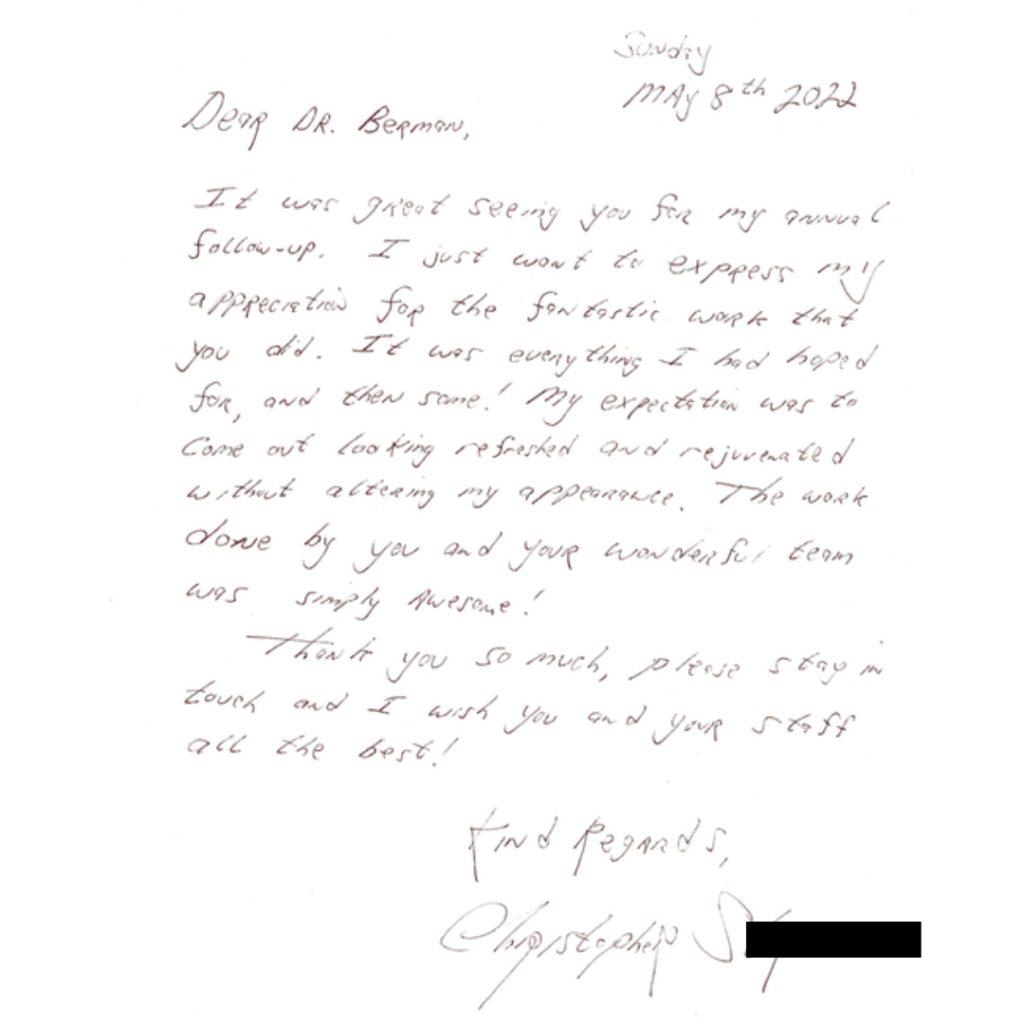 Sunday
May 8th 2022
Dear Dr. Berman,
It was great seeing you for my annual
follow-up. I just want to express my
appreciation for the fantastic work that
you did. It was everything I had hoped
for, and then some! My expectation was to
come out looking refreshed and rejuvenated
without altering my appearance. The work
done by you and your wonderful team
was simply Awesome!
Thank you so much, please stay in
touch and I wish you and your staff
all the best!
Kind Regards,
Christopher